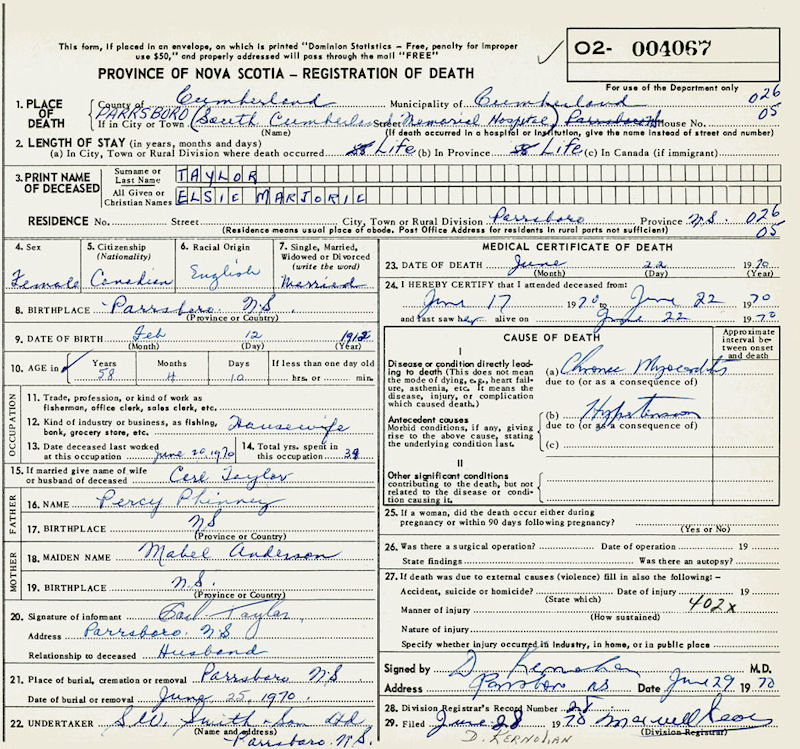 This form, if placed in an envelope, on which is printed "Dominion Statistics — Free, penalty for improper
use $50," and properly addressed will pass through the mail "FREE"
O2- 004067
PROVINCE OF NOVA SCOTIA — REGISTRATION OF DEATH
For use of the Department only
1. PLACE OF DEATH
County of Cumberland Municipality of Cumberland 026
PARRSBORO If in City or Town (South Cumberland Street Memorial Hospital) Parrsboro House No. 05
(Name) (If death occurred in a hospital or institution, give the name instead of street and number)
2. LENGTH OF STAY (in years, months and days)
(a) In City, Town or Rural Division where death occurred 58 Life (b) In Province 58 Life (c) In Canada (if immigrant)
3. PRINT NAME OF DECEASED
Surname or Last Name TAYLOR
All Given or Christian Names ELSIE MARJORIE
RESIDENCE No. Street City, Town or Rural Division Parrsboro Province N.S. 026
(Residence means usual place of abode. Post Office Address for residents in rural parts not sufficient) 05
4. Sex Female
5. Citizenship (Nationality) Canadian
6. Racial Origin English
7. Single, Married, Widowed or Divorced (write the word) Married
8. BIRTHPLACE Parrsboro N.S.
(Province or Country)
9. DATE OF BIRTH Feb 12 1912
(Month) (Day) (Year)
10. AGE in Years Months Days If less than one day old
58 4 10 hrs. or min.
OCCUPATION
11. Trade, profession, or kind of work as
fisherman, office clerk, sales clerk, etc.
12. Kind of industry or business, as fishing,
bank, grocery store, etc. Housewife
13. Date deceased last worked
at this occupation June 20, 1970
14. Total yrs. spent in
this occupation 39
15. If married give name of wife
or husband of deceased Carl Taylor
FATHER
16. NAME Percy Phinney
17. BIRTHPLACE NS
(Province or Country)
MOTHER
18. MAIDEN NAME Mabel Anderson
19. BIRTHPLACE N.S.
(Province or Country)
20. Signature of informant Carl Taylor
Address Parrsboro, N.S
Relationship to deceased Husband
21. Place of burial, cremation or removal Parrsboro N.S.
Date of burial or removal June 25, 1970
22. UNDERTAKER S.W. Smith & Son Ltd
(Name and address)
Parrsboro, N.S.
MEDICAL CERTIFICATE OF DEATH
23. DATE OF DEATH June 22 1970
(Month) (Day) (Year)
24. I HEREBY CERTIFY that I attended deceased from:
June 17 1970 to June 22 1970
and last saw her alive on June 22 1970
CAUSE OF DEATH
Approximate interval between onset and death
I
Disease or condition directly leading to death (This does not mean the mode of dying, e.g., heart failure, asthenia, etc. It means the disease, injury, or complication which caused death.)
(a) Chronic Myocarditis
due to (or as a consequence of)
Antecedent causes
Morbid conditions, if any, giving rise to the above cause, stating the underlying condition last.
(b) Hypertension
due to (or as a consequence of)
(c)
II
Other significant conditions
contributing to the death, but not related to the disease or condition causing it.
25. If a woman, did the death occur either during
pregnancy or within 90 days following pregnancy?
(Yes or No)
26. Was there a surgical operation? Date of operation 19
State findings Was there an autopsy?
27. If death was due to external causes (violence) fill in also the following:—
Accident, suicide or homicide? Date of injury 19
(State which) 402x
Manner of injury
(How sustained)
Nature of injury
Specify whether injury occurred in industry, in home, or in public place
Signed by D. Kernohan M.D.
Address Parrsboro NS Date June 29 1970
28. Division Registrar's Record Number 28
29. Filed June 28 1970
(Division Registrar)
D. KERNOHAN